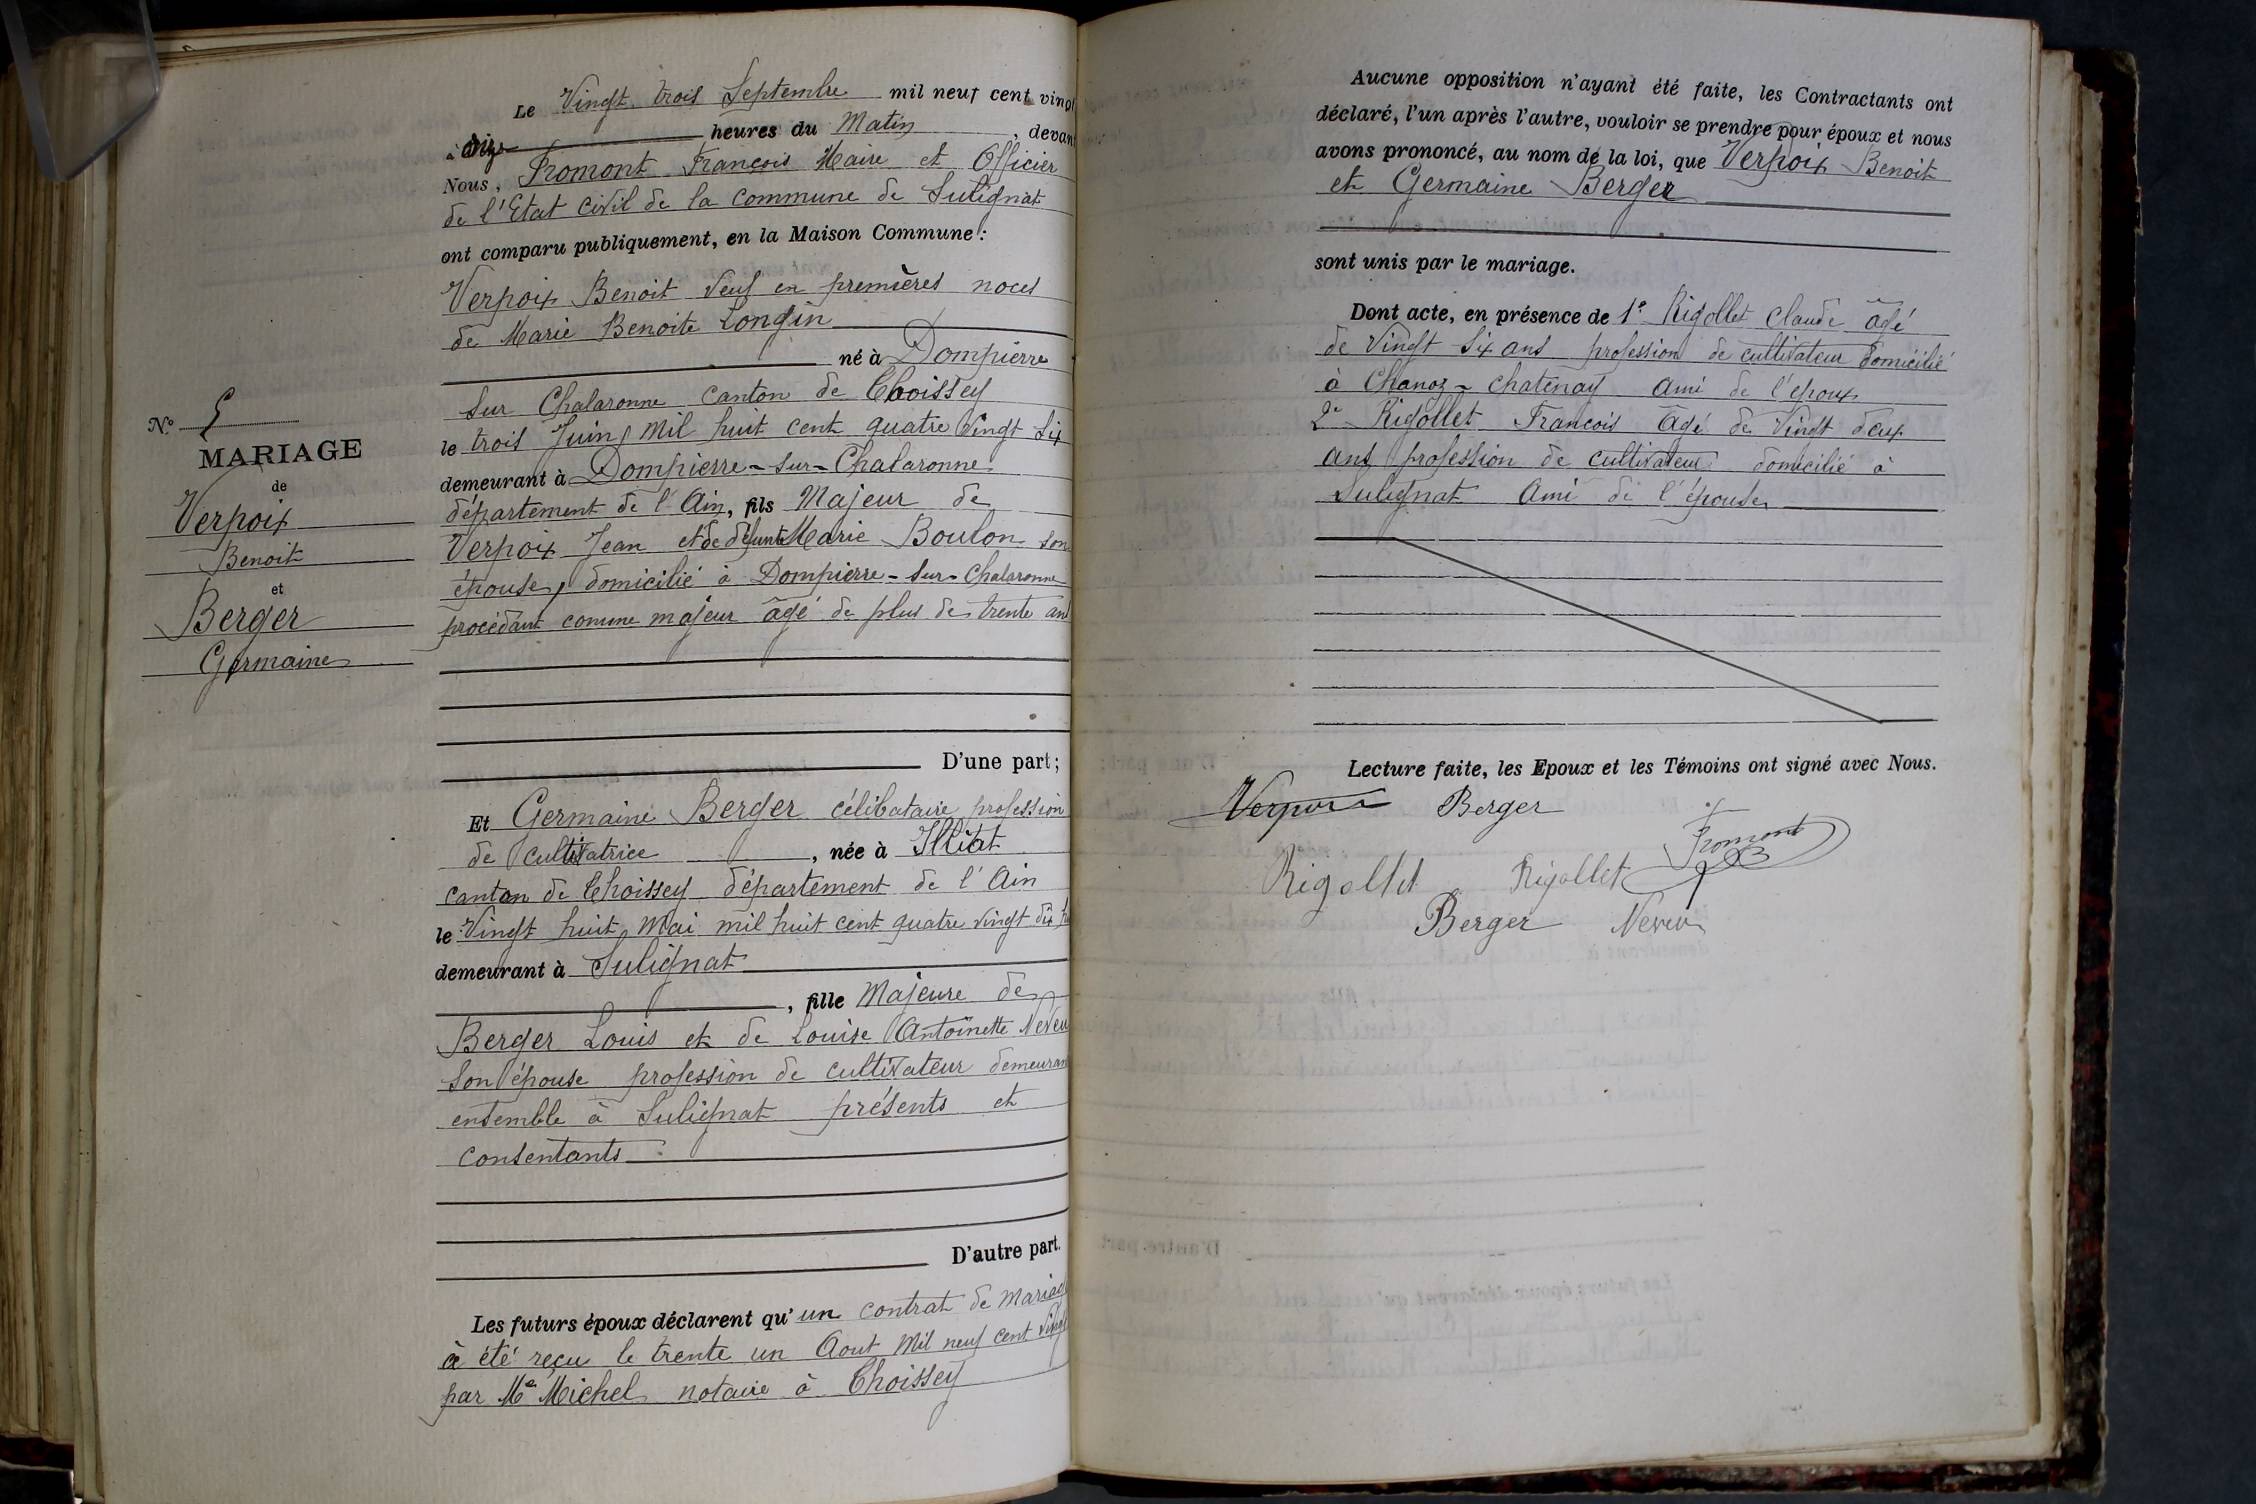 Le Vingt trois Septembre mil neuf cent vingt
à dix heures du Matin, devant
Nous, Fromont François Maire et Officier
de l'Etat civil de la commune de Sulignat
ont comparu publiquement, en la Maison Commune :
Verpoix Benoit veuf en premières noces
de Marie Benoite Longin
né à Dompierre
sur Chalaronne canton de Thoissey
le trois Juin mil huit cent quatre vingt six
demeurant à Dompierre-sur-Chalaronne
département de l'Ain, fils Majeur de
Verpoix Jean et de défunte Marie Boulon son
épouse, domicilié à Dompierre-sur-Chalaronne
procédant comme majeur âgé de plus de trente ans
N° 5
MARIAGE
de
Verpoix
Benoit
et
Berger
Germaine
D'une part ;
Et Germaine Berger célibataire profession
de cultivatrice, née à Illiat
canton de Thoissey département de l'Ain
le Vingt huit Mai mil huit cent quatre vingt dix
demeurant à Sulignat
, fille Majeure de
Berger Louis et de Louise Antoinette Neveu
son épouse profession de cultivateur demeurant
ensemble à Sulignat présents et
consentants
D'autre part.
Les futurs époux déclarent qu'un contrat de mariage
a été reçu le trente un Aout mil neuf cent vingt
par Me Michel notaire à Thoissey
Aucune opposition n'ayant été faite, les Contractants ont
déclaré, l'un après l'autre, vouloir se prendre pour époux et nous
avons prononcé, au nom de la loi, que Verpoix Benoit
et Germaine Berger
sont unis par le mariage.
Dont acte, en présence de 1° Rigollet Claude âgé
de vingt six ans profession de cultivateur domicilié
à Chanoz-Chatenay ami de l'époux
2° Rigollet François âgé de vingt deux
ans profession de cultivateur domicilié à
Sulignat ami de l'épouse
Lecture faite, les Epoux et les Témoins ont signé avec Nous.
Verpoix Berger
Fromont
Rigollet Rigollet
Berger Neveu